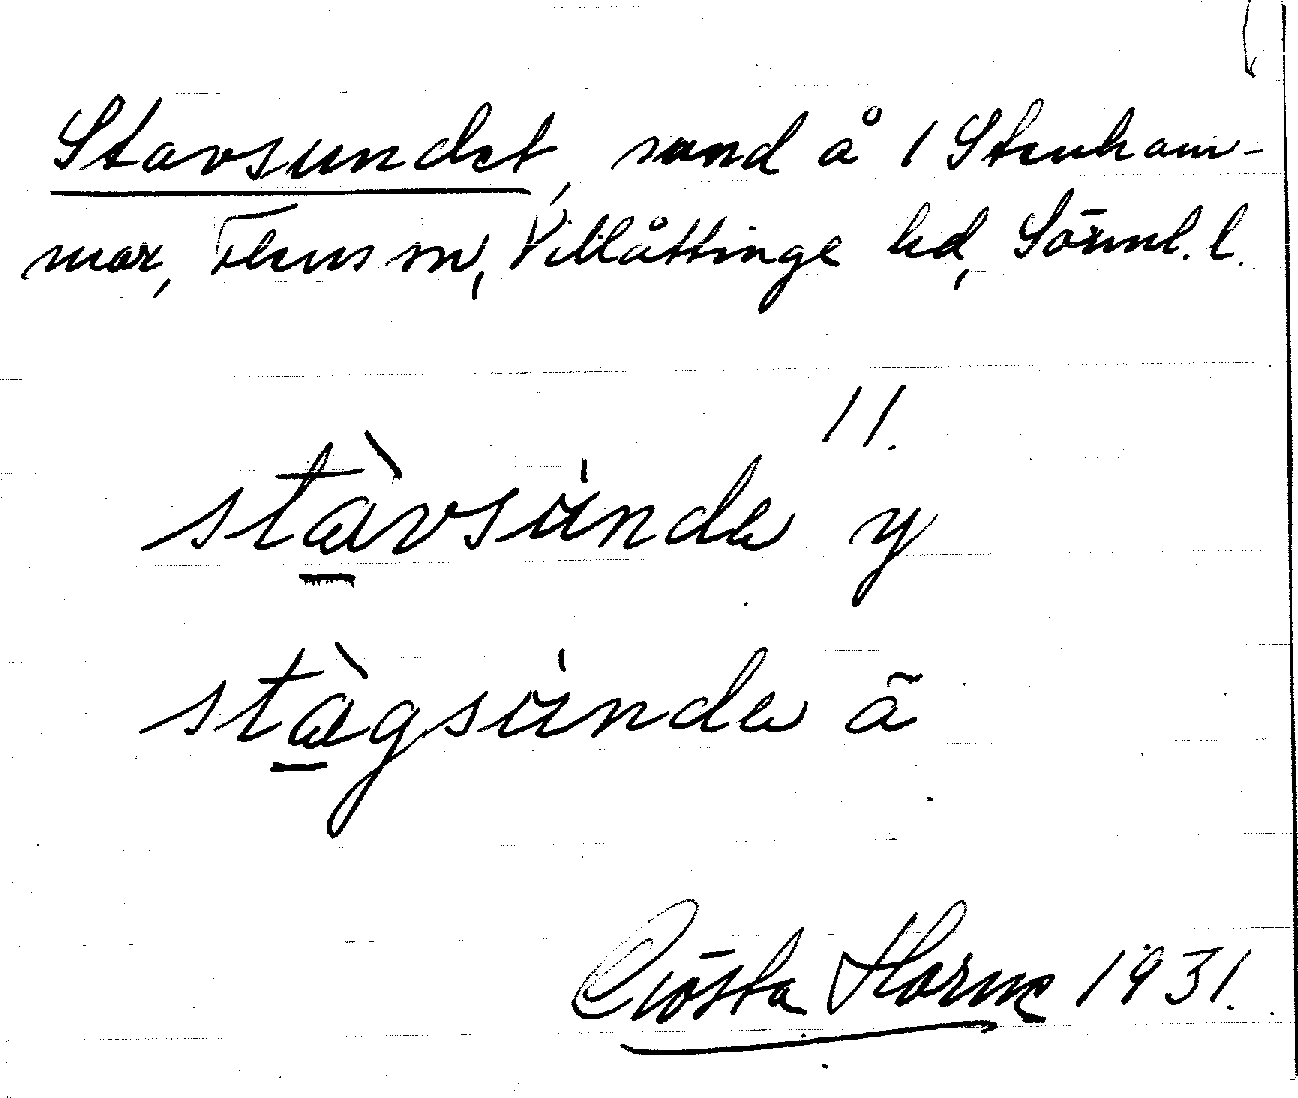 Stavsundet, sund å 1 Stenham-
mar, Flens sn, Villåttinge hd, Sörml. l.
11.
stàvsúnda y
stàgsúnda ä
Gösta Horne 1931.